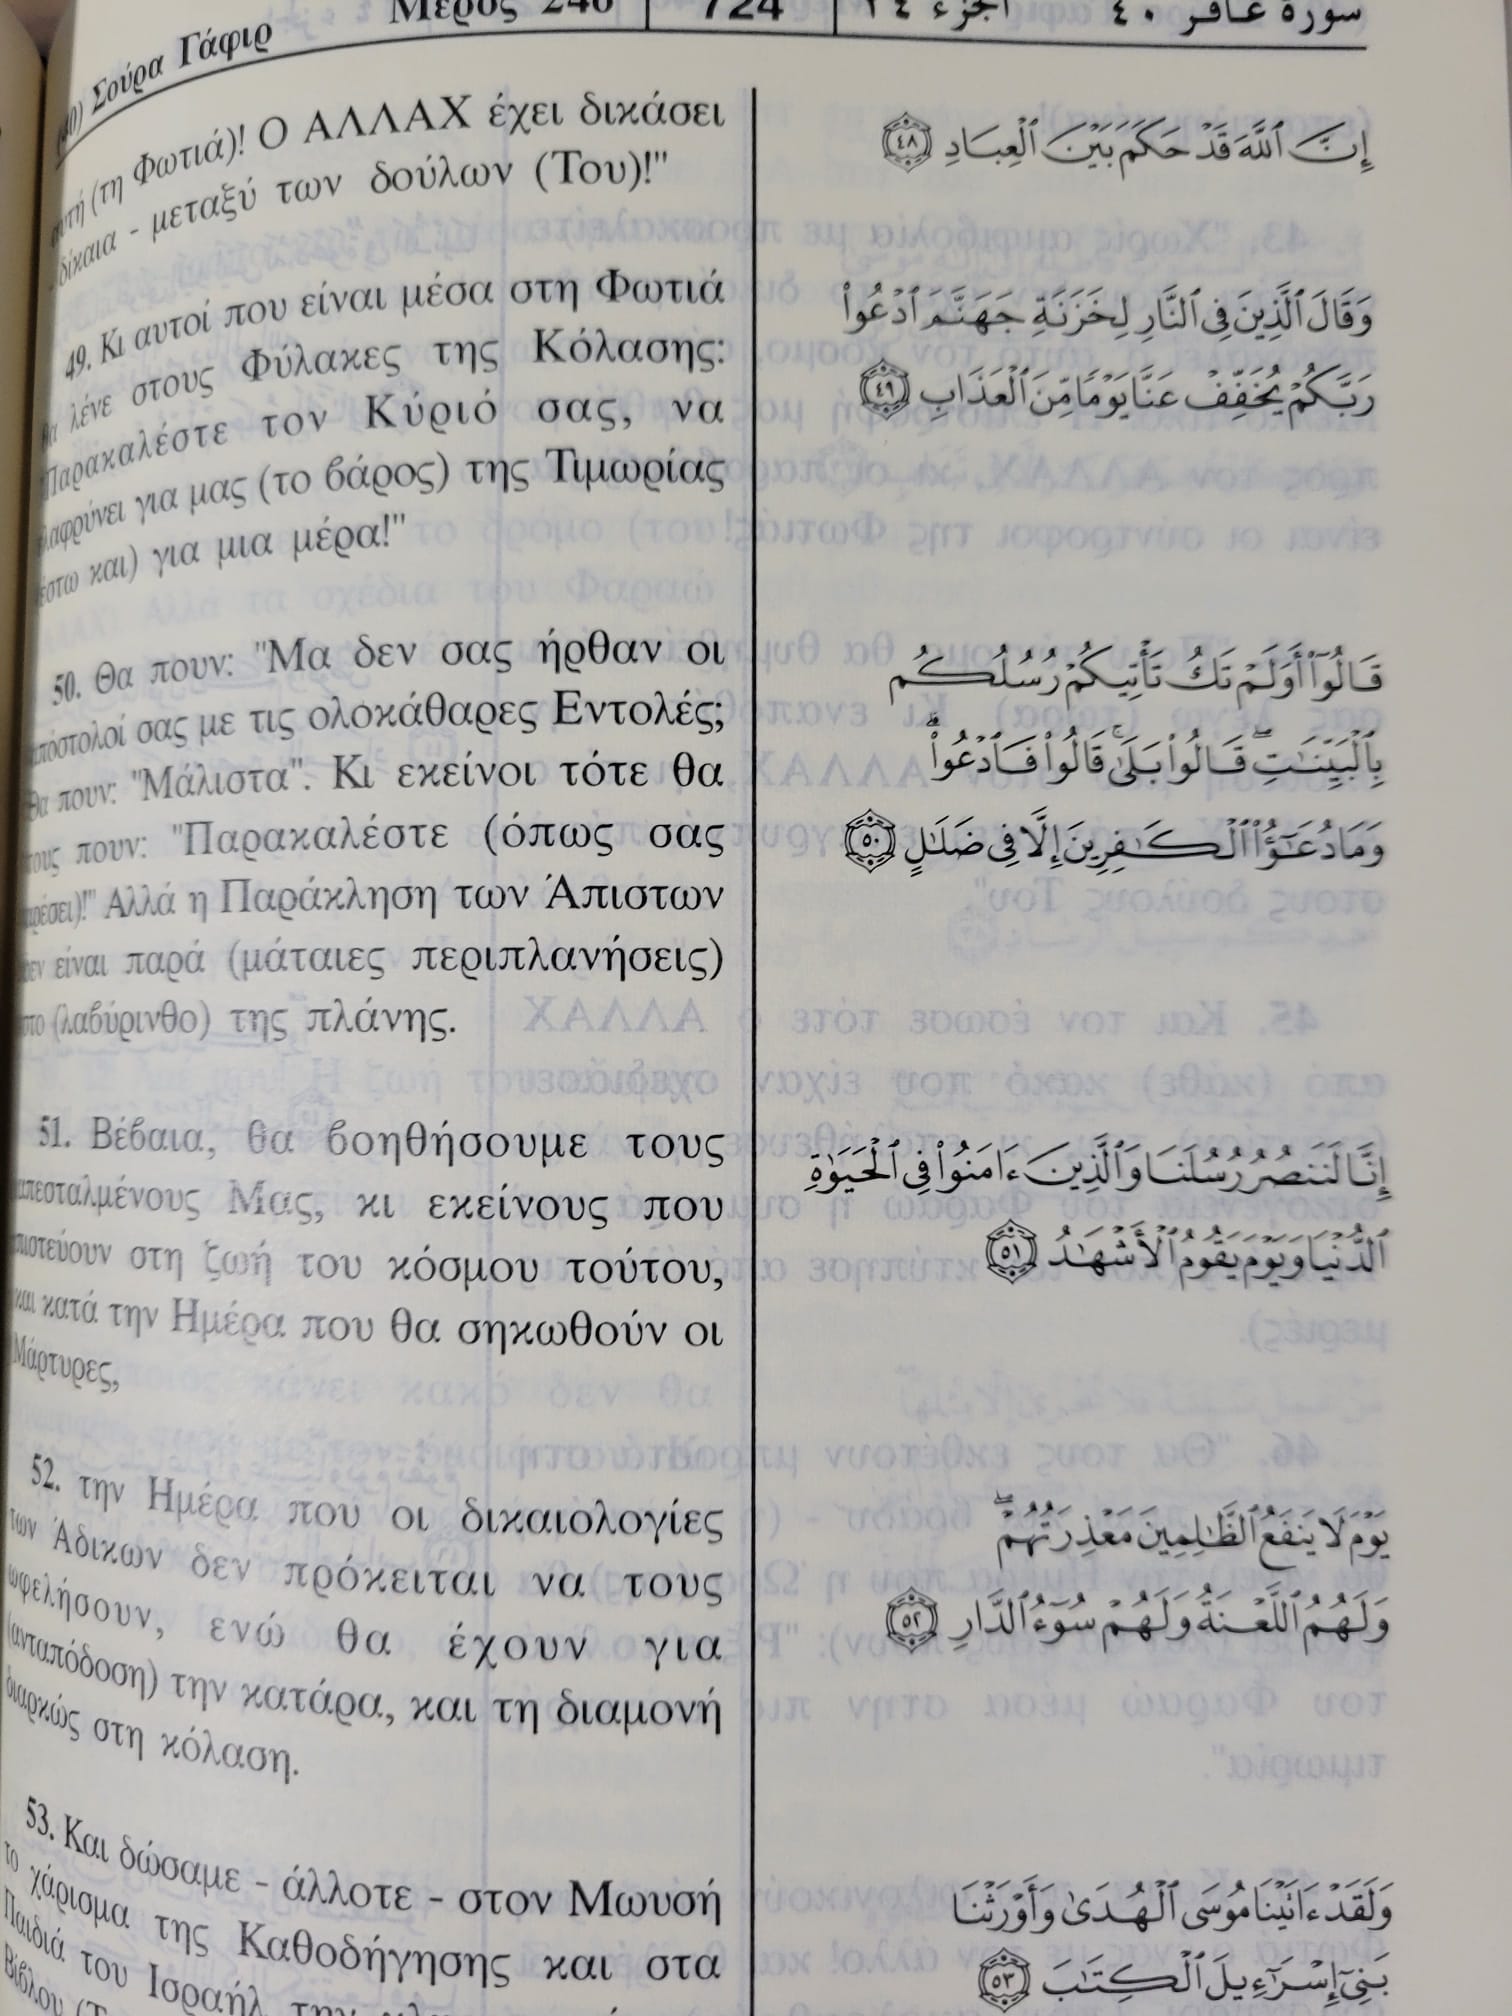 (40) Σούρα Γάφιρ Μέρος 24ο 724 الجزء ٢٤ سورة غافر ٤٠
αυτή (τη Φωτιά)! Ο ΑΛΛΑΧ έχει δικάσει
δίκαια - μεταξύ των δούλων (Του)!"
49. Κι αυτοί που είναι μέσα στη Φωτιά
θα λένε στους Φύλακες της Κόλασης:
Παρακαλέστε τον Κύριό σας, να
ελαφρύνει για μας (το βάρος) της Τιμωρίας
(έστω και) για μια μέρα!"
50. Θα πουν: "Μα δεν σας ήρθαν οι
απόστολοί σας με τις ολοκάθαρες Εντολές;
Θα πουν: "Μάλιστα". Κι εκείνοι τότε θα
τους πουν: "Παρακαλέστε (όπως σας
αρέσει)!" Αλλά η Παράκληση των Άπιστων
δεν είναι παρά (μάταιες περιπλανήσεις)
στο (λαβύρινθο) της πλάνης.
51. Βέβαια, θα βοηθήσουμε τους
απεσταλμένους Μας, κι εκείνους που
πιστεύουν στη ζωή του κόσμου τούτου,
και κατά την Ημέρα που θα σηκωθούν οι
Μάρτυρες,
52. την Ημέρα που οι δικαιολογίες
των Άδικων δεν πρόκειται να τους
ωφελήσουν, ενώ θα έχουν για
(ανταπόδοση) την κατάρα, και τη διαμονή
διαρκώς στη κόλαση.
53. Και δώσαμε - άλλοτε - στον Μωυσή
το χάρισμα της Καθοδήγησης και στα
Παιδιά του Ισραήλ την
Βίβλου
إِنَّ ٱللَّهَ قَدْ حَكَمَ بَيْنَ ٱلْعِبَادِ ٤٨
وَقَالَ ٱلَّذِينَ فِى ٱلنَّارِ لِخَزَنَةِ جَهَنَّمَ ٱدْعُوا۟
رَبَّكُمْ يُخَفِّفْ عَنَّا يَوْمًا مِّنَ ٱلْعَذَابِ ٤٩
قَالُوٓا۟ أَوَلَمْ تَكُ تَأْتِيكُمْ رُسُلُكُم
بِٱلْبَيِّنَٰتِ ۖ قَالُوا۟ بَلَىٰ ۚ قَالُوا۟ فَٱدْعُوا۟ ۗ
وَمَا دُعَٰٓؤُا۟ ٱلْكَٰفِرِينَ إِلَّا فِى ضَلَٰلٍ ٥٠
إِنَّا لَنَنصُرُ رُسُلَنَا وَٱلَّذِينَ ءَامَنُوا۟ فِى ٱلْحَيَوٰةِ
ٱلدُّنْيَا وَيَوْمَ يَقُومُ ٱلْأَشْهَٰدُ ٥١
يَوْمَ لَا يَنفَعُ ٱلظَّٰلِمِينَ مَعْذِرَتُهُمْ ۖ
وَلَهُمُ ٱللَّعْنَةُ وَلَهُمْ سُوٓءُ ٱلدَّارِ ٥٢
وَلَقَدْ ءَاتَيْنَا مُوسَى ٱلْهُدَىٰ وَأَوْرَثْنَا
بَنِىٓ إِسْرَٰٓءِيلَ ٱلْكِتَٰبَ ٥٣